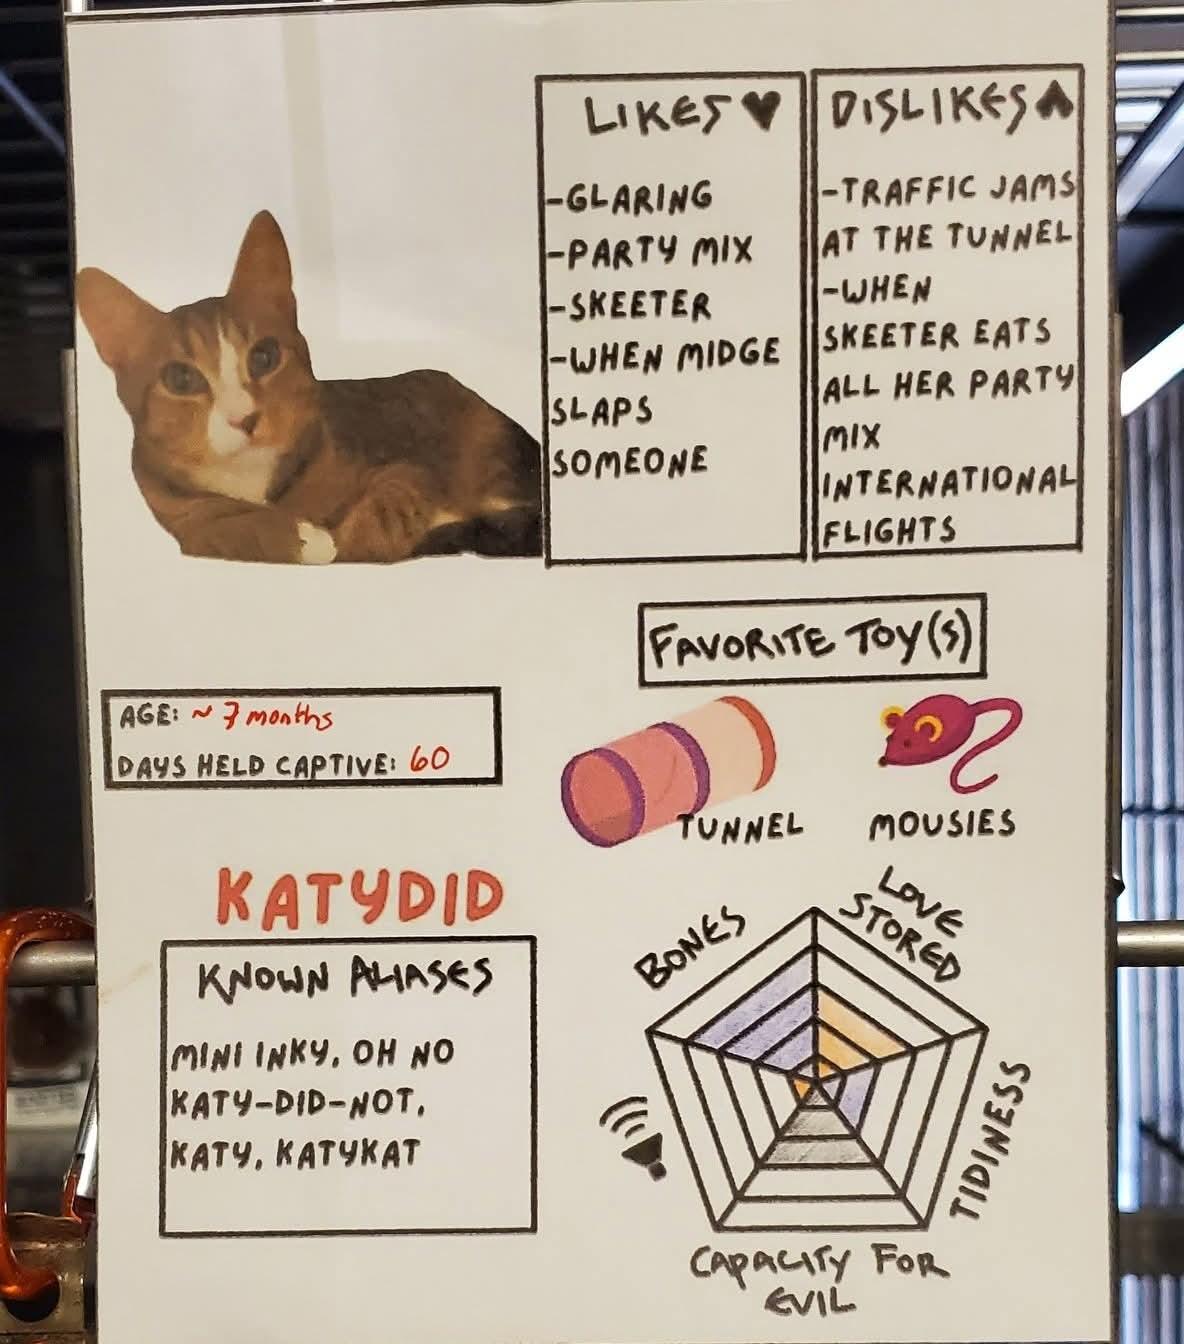 LIKES ♥
-GLARING
-PARTY MIX
-SKEETER
-WHEN MIDGE
SLAPS
SOMEONE
DISLIKES
-TRAFFIC JAMS
AT THE TUNNEL
-WHEN
SKEETER EATS
ALL HER PARTY
MIX
INTERNATIONAL
FLIGHTS
FAVORITE TOY(S)
TUNNEL
MOUSIES
AGE: ~ 7 months
DAYS HELD CAPTIVE: 60
KATYDID
KNOWN ALIASES
MINI INKY, OH NO
KATY-DID-NOT,
KATY, KATYKAT
BONES
LOVE
STORED
TIDINESS
CAPACITY FOR
EVIL